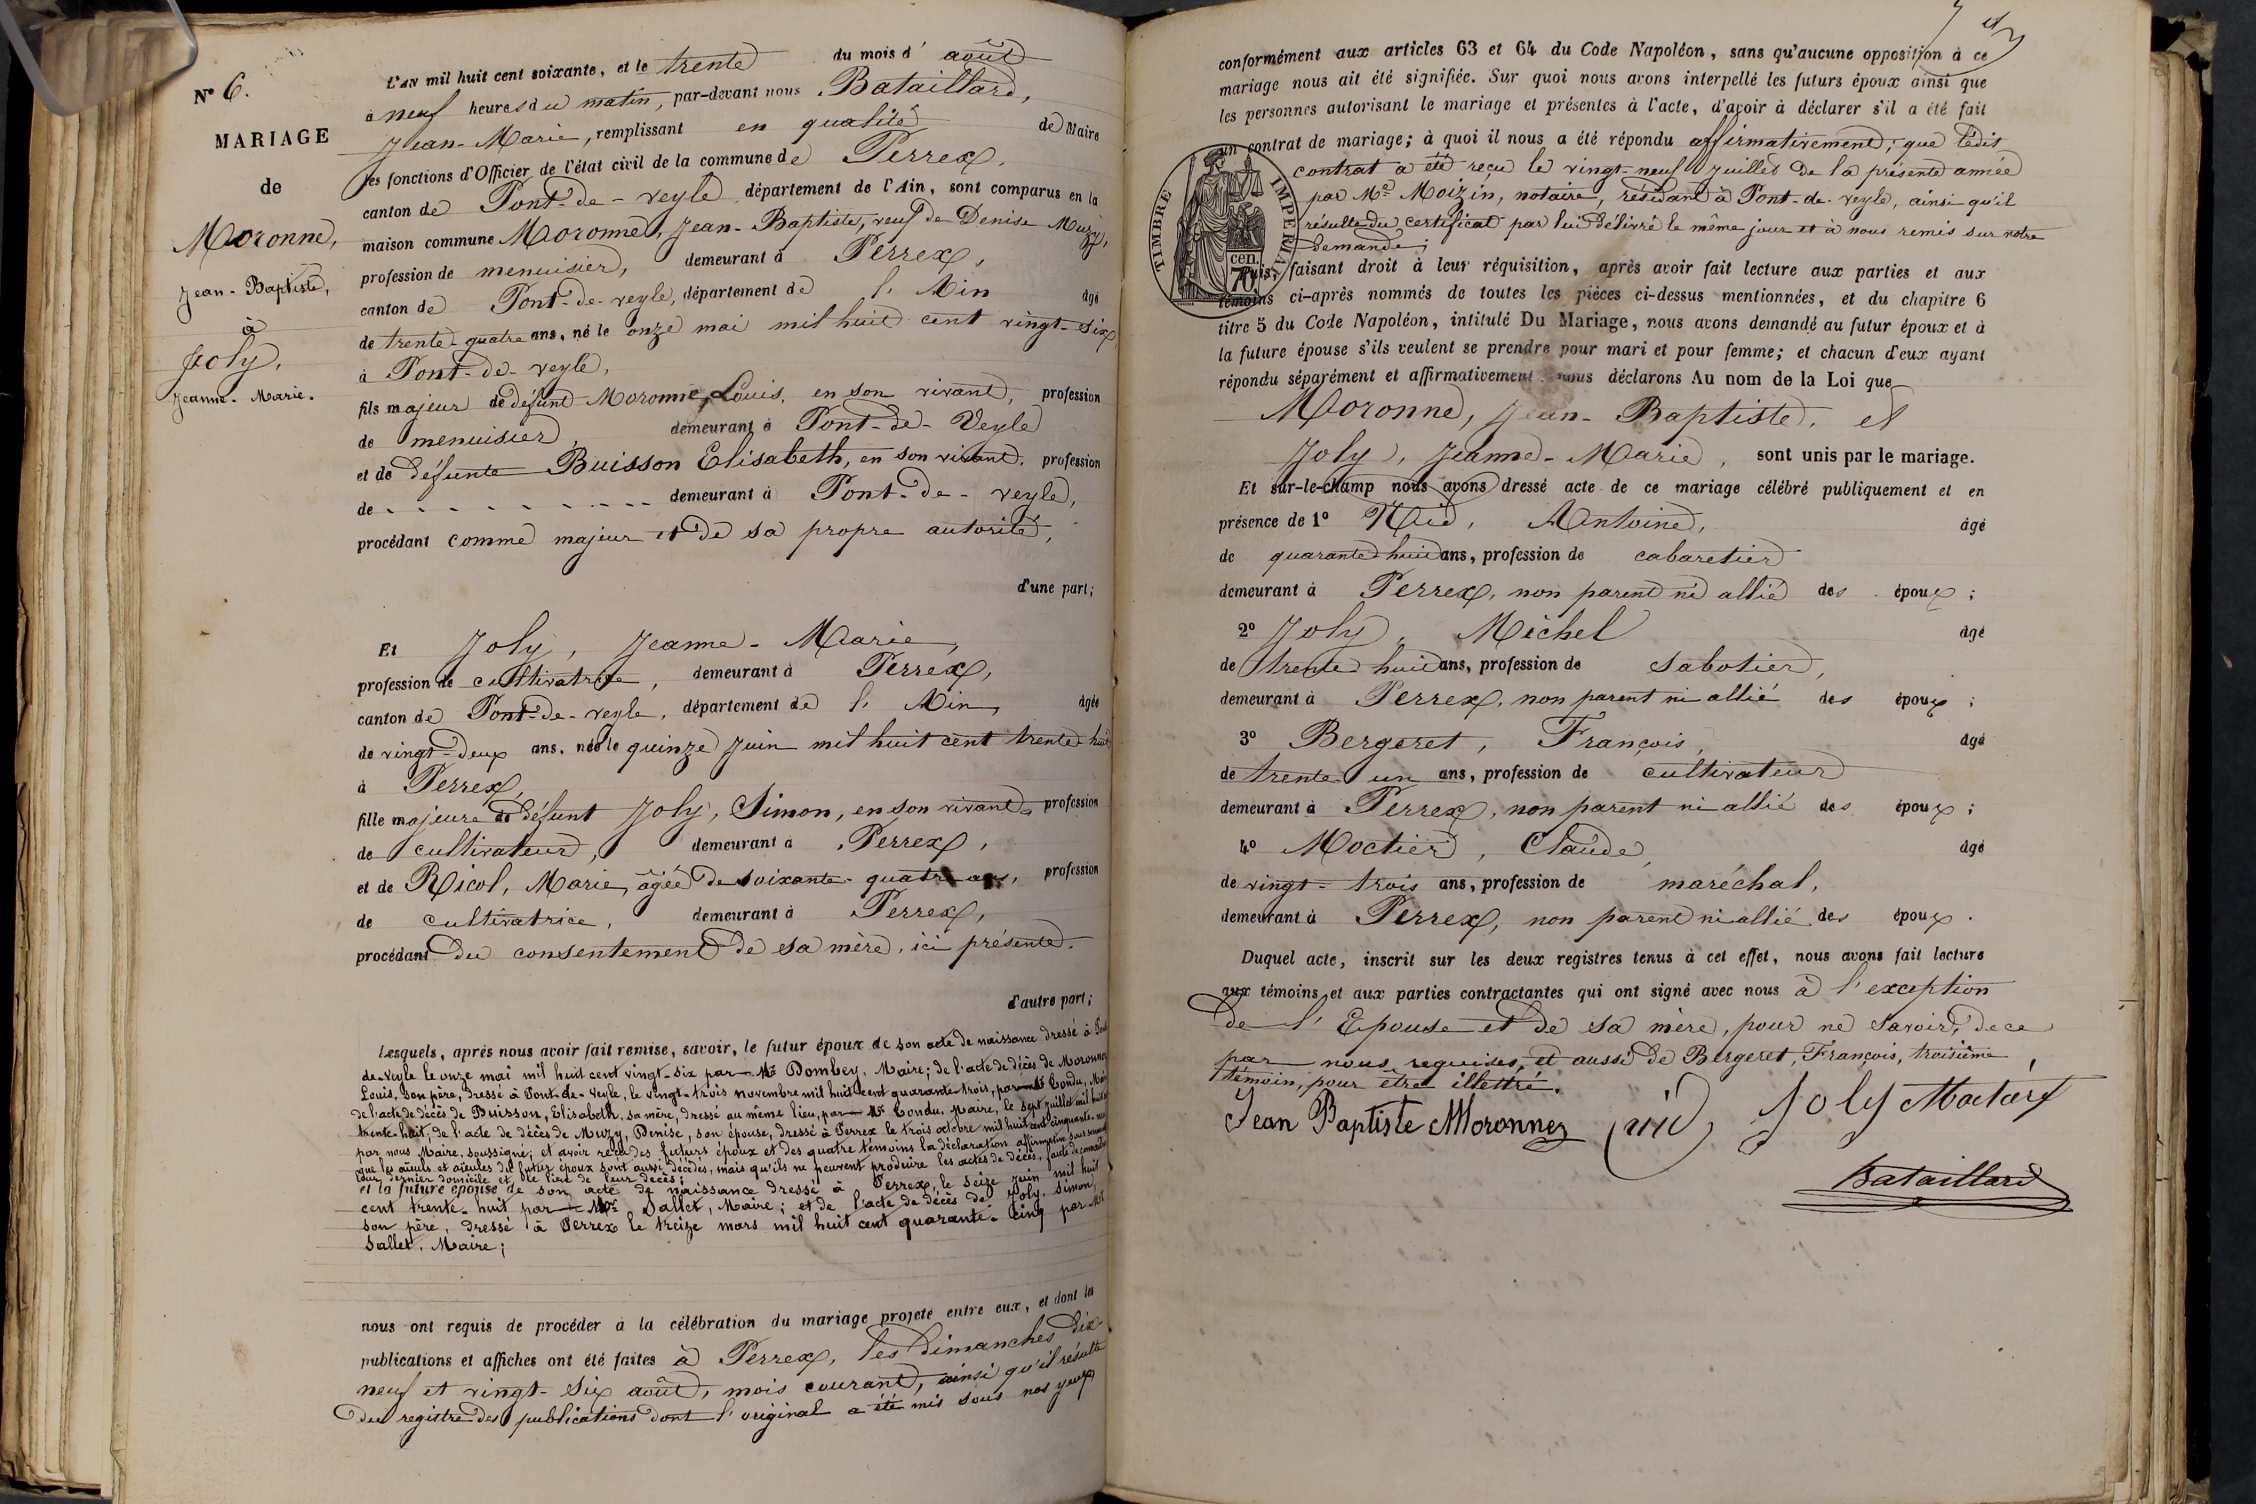 N° 6.
MARIAGE
de
Moronne,
Jean-Baptiste,
à
Joly,
Jeanne-Marie.
L'an mil huit cent soixante, et le trente du mois d'août
à neuf heures du matin, par-devant nous Bataillard,
Jean-Marie, remplissant en qualité de Maire
les fonctions d'Officier de l'état civil de la commune de Perrex,
canton de Pont-de-veyle département de l'Ain, sont comparus en la
maison commune Moronne, Jean-Baptiste, veuf de Denise Muzy,
profession de menuisier, demeurant à Perrex,
canton de Pont-de-veyle, département de l'Ain âgé
de trente-quatre ans, né le onze mai mil huit cent vingt-six
à Pont-de-veyle,
fils majeur de défunt Moronne, Louis, en son vivant, profession
de menuisier, demeurant à Pont-de-Veyle
et de défunte Buisson Elisabeth, en son vivant, profession
de - - - - - - - - - demeurant à Pont-de-veyle,
procédant comme majeur et de sa propre autorité,
d'une part;
Et Joly, Jeanne-Marie,
profession de cultivatrice, demeurant à Perrex,
canton de Pont-de-veyle, département de l'Ain, âgée
de vingt-deux ans, née le quinze juin mil huit cent trente-huit
à Perrex,
fille majeure de défunt Joly, Simon, en son vivant, profession
de cultivateur, demeurant à Perrex,
et de Ricol, Marie, âgée de soixante-quatre ans, profession
de cultivatrice, demeurant à Perrex,
procédant du consentement de sa mère, ici présente.
d'autre part;
Lesquels, après nous avoir fait remise, savoir, le futur époux de son acte de naissance dressé à Pont
de-Veyle le onze mai mil huit cent vingt-six par Mr Dombey, Maire; de l'acte de décès de Moronne
Louis, son père, dressé à Pont-de-Veyle, le vingt-trois novembre mil huit cent quarante-trois, par Mr Condu, Maire
de l'acte de décès de Buisson, Elisabeth, sa mère, dressé au même lieu, par Mr Condu, Maire, le sept juillet mil huit cent
trente-huit; de l'acte de décès de Muzy, Denise, son épouse, dressé à Perrex le trois octobre mil huit cent cinquante-neuf
par nous Maire, soussigné; et avoir reçu des futurs époux et des quatre témoins la déclaration affirmative sous serment
que les aïeuls et aïeules du futur époux sont aussi décédés, mais qu'ils ne peuvent produire les actes de décès, faute de connaître
leur dernier domicile et le lieu de leur décès;
et la future épouse de son acte de naissance dressé à Perrex, le seize juin mil huit
cent trente-huit par Mr Sallet, Maire; et de l'acte de décès de Joly, Simon,
son père, dressé à Perrex le treize mars mil huit cent quarante-cinq par Mr
Sallet, Maire;
nous ont requis de procéder à la célébration du mariage projeté entre eux, et dont les
publications et affiches ont été faites à Perrex, les dimanches dix-
neuf et vingt-six août, mois courant, ainsi qu'il résulte
du registre des publications dont l'original a été mis sous nos yeux
conformément aux articles 63 et 64 du Code Napoléon, sans qu'aucune opposition à ce
mariage nous ait été signifiée. Sur quoi nous avons interpellé les futurs époux ainsi que
les personnes autorisant le mariage et présentes à l'acte, d'avoir à déclarer s'il a été fait
un contrat de mariage; à quoi il nous a été répondu affirmativement; que ledit
contrat a été reçu le vingt-neuf juillet de la présente année
par Me Moizin, notaire, résidant à Pont-de-veyle, ainsi qu'il
résulte du certificat par lui délivré le même jour et à nous remis sur notre
demande;
TIMBRE IMPERIAL
cen.
70
Puis, faisant droit à leur réquisition, après avoir fait lecture aux parties et aux
témoins ci-après nommés de toutes les pièces ci-dessus mentionnées, et du chapitre 6
titre 5 du Code Napoléon, intitulé Du Mariage, nous avons demandé au futur époux et à
la future épouse s'ils veulent se prendre pour mari et pour femme; et chacun d'eux ayant
répondu séparément et affirmativement nous déclarons Au nom de la Loi que
Moronne, Jean-Baptiste, et
Joly, Jeanne-Marie, sont unis par le mariage.
Et sur-le-champ nous avons dressé acte de ce mariage célébré publiquement et en
présence de 1° Nid, Antoine, âgé
de quarante-huit ans, profession de cabaretier
demeurant à Perrex, non parent ni allié des époux;
2° Joly, Michel âgé
de trente huit ans, profession de sabotier,
demeurant à Perrex, non parent ni allié des époux;
3° Bergeret, François, âgé
de trente un ans, profession de cultivateur
demeurant à Perrex, non parent ni allié des époux;
4° Moctier, Claude, âgé
de vingt-trois ans, profession de maréchal,
demeurant à Perrex, non parent ni allié des époux.
Duquel acte, inscrit sur les deux registres tenus à cet effet, nous avons fait lecture
aux témoins et aux parties contractantes qui ont signé avec nous à l'exception
de l'Epouse et de sa mère, pour ne savoir, de ce
par nous requises, et aussi de Bergeret, François, troisième
témoin, pour être illettré.
Jean Baptiste Moronne nid Joly Moctier
Bataillard